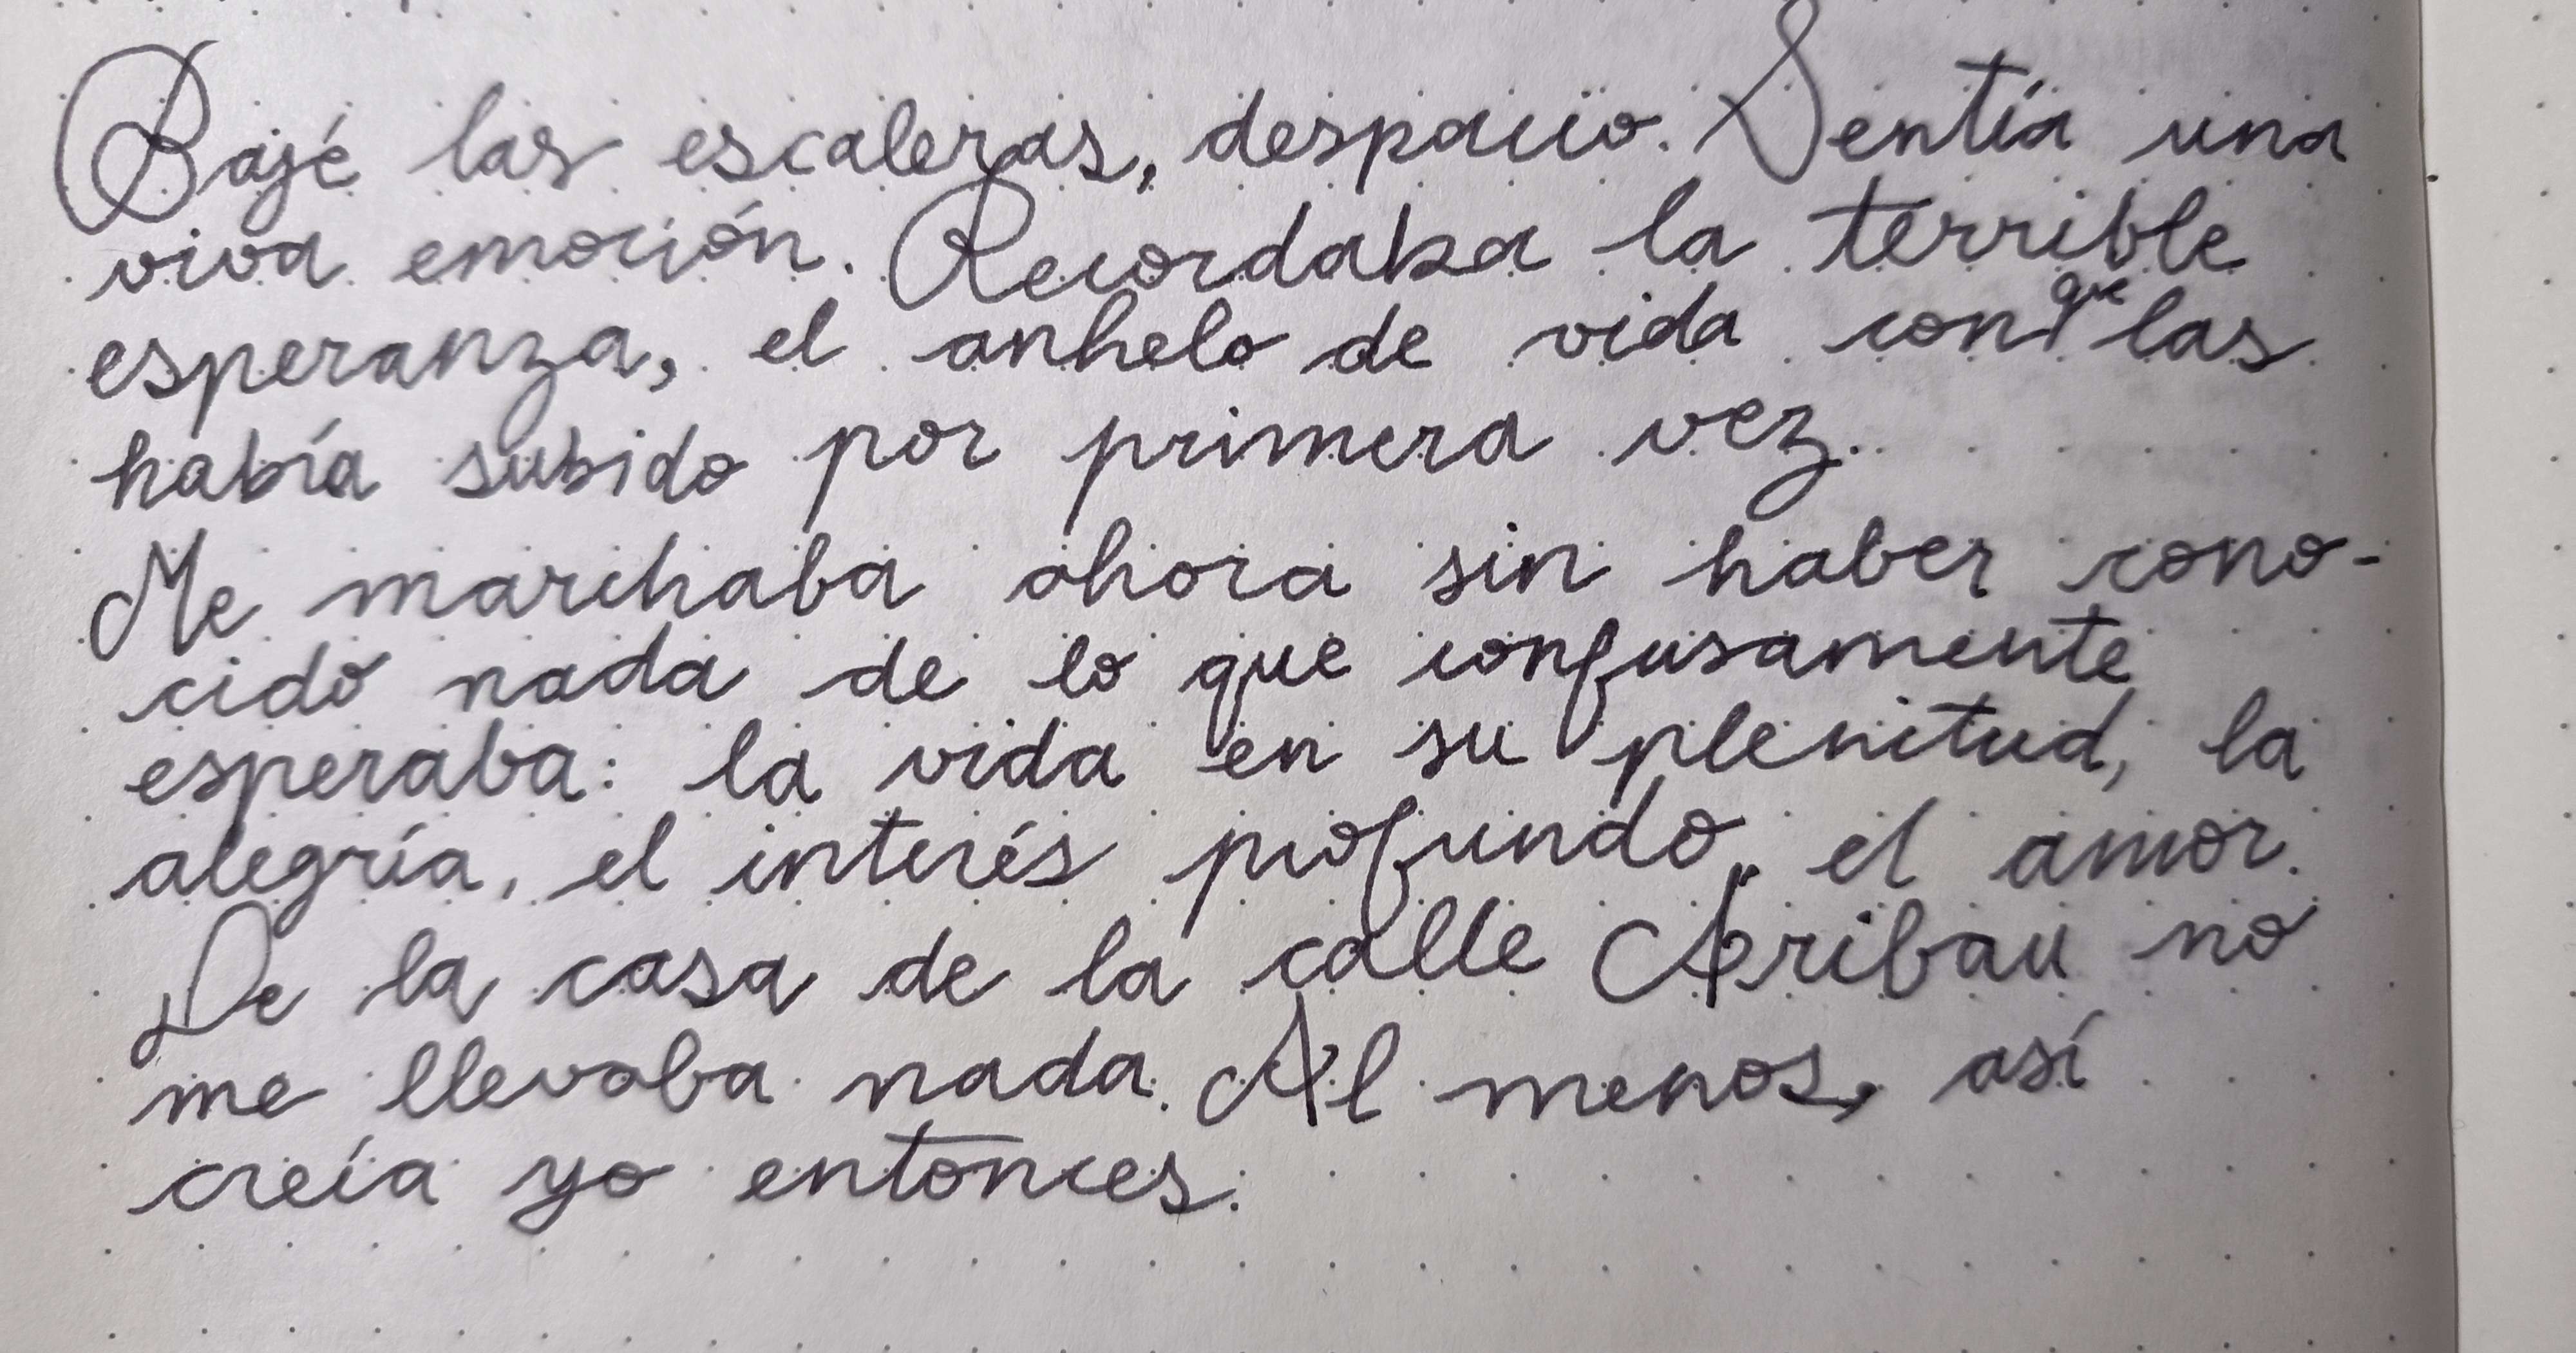 Bajé las escaleras, despacio. Sentía una
viva emoción. Recordaba la terrible
esperanza, el anhelo de vida con que las
había subido por primera vez.
Me marchaba ahora sin haber cono-
cido nada de lo que confusamente
esperaba: la vida en su plenitud, la
alegría, el interés profundo, el amor.
De la casa de la calle Aribau no
me llevaba nada. Al menos, así
creía yo entonces.